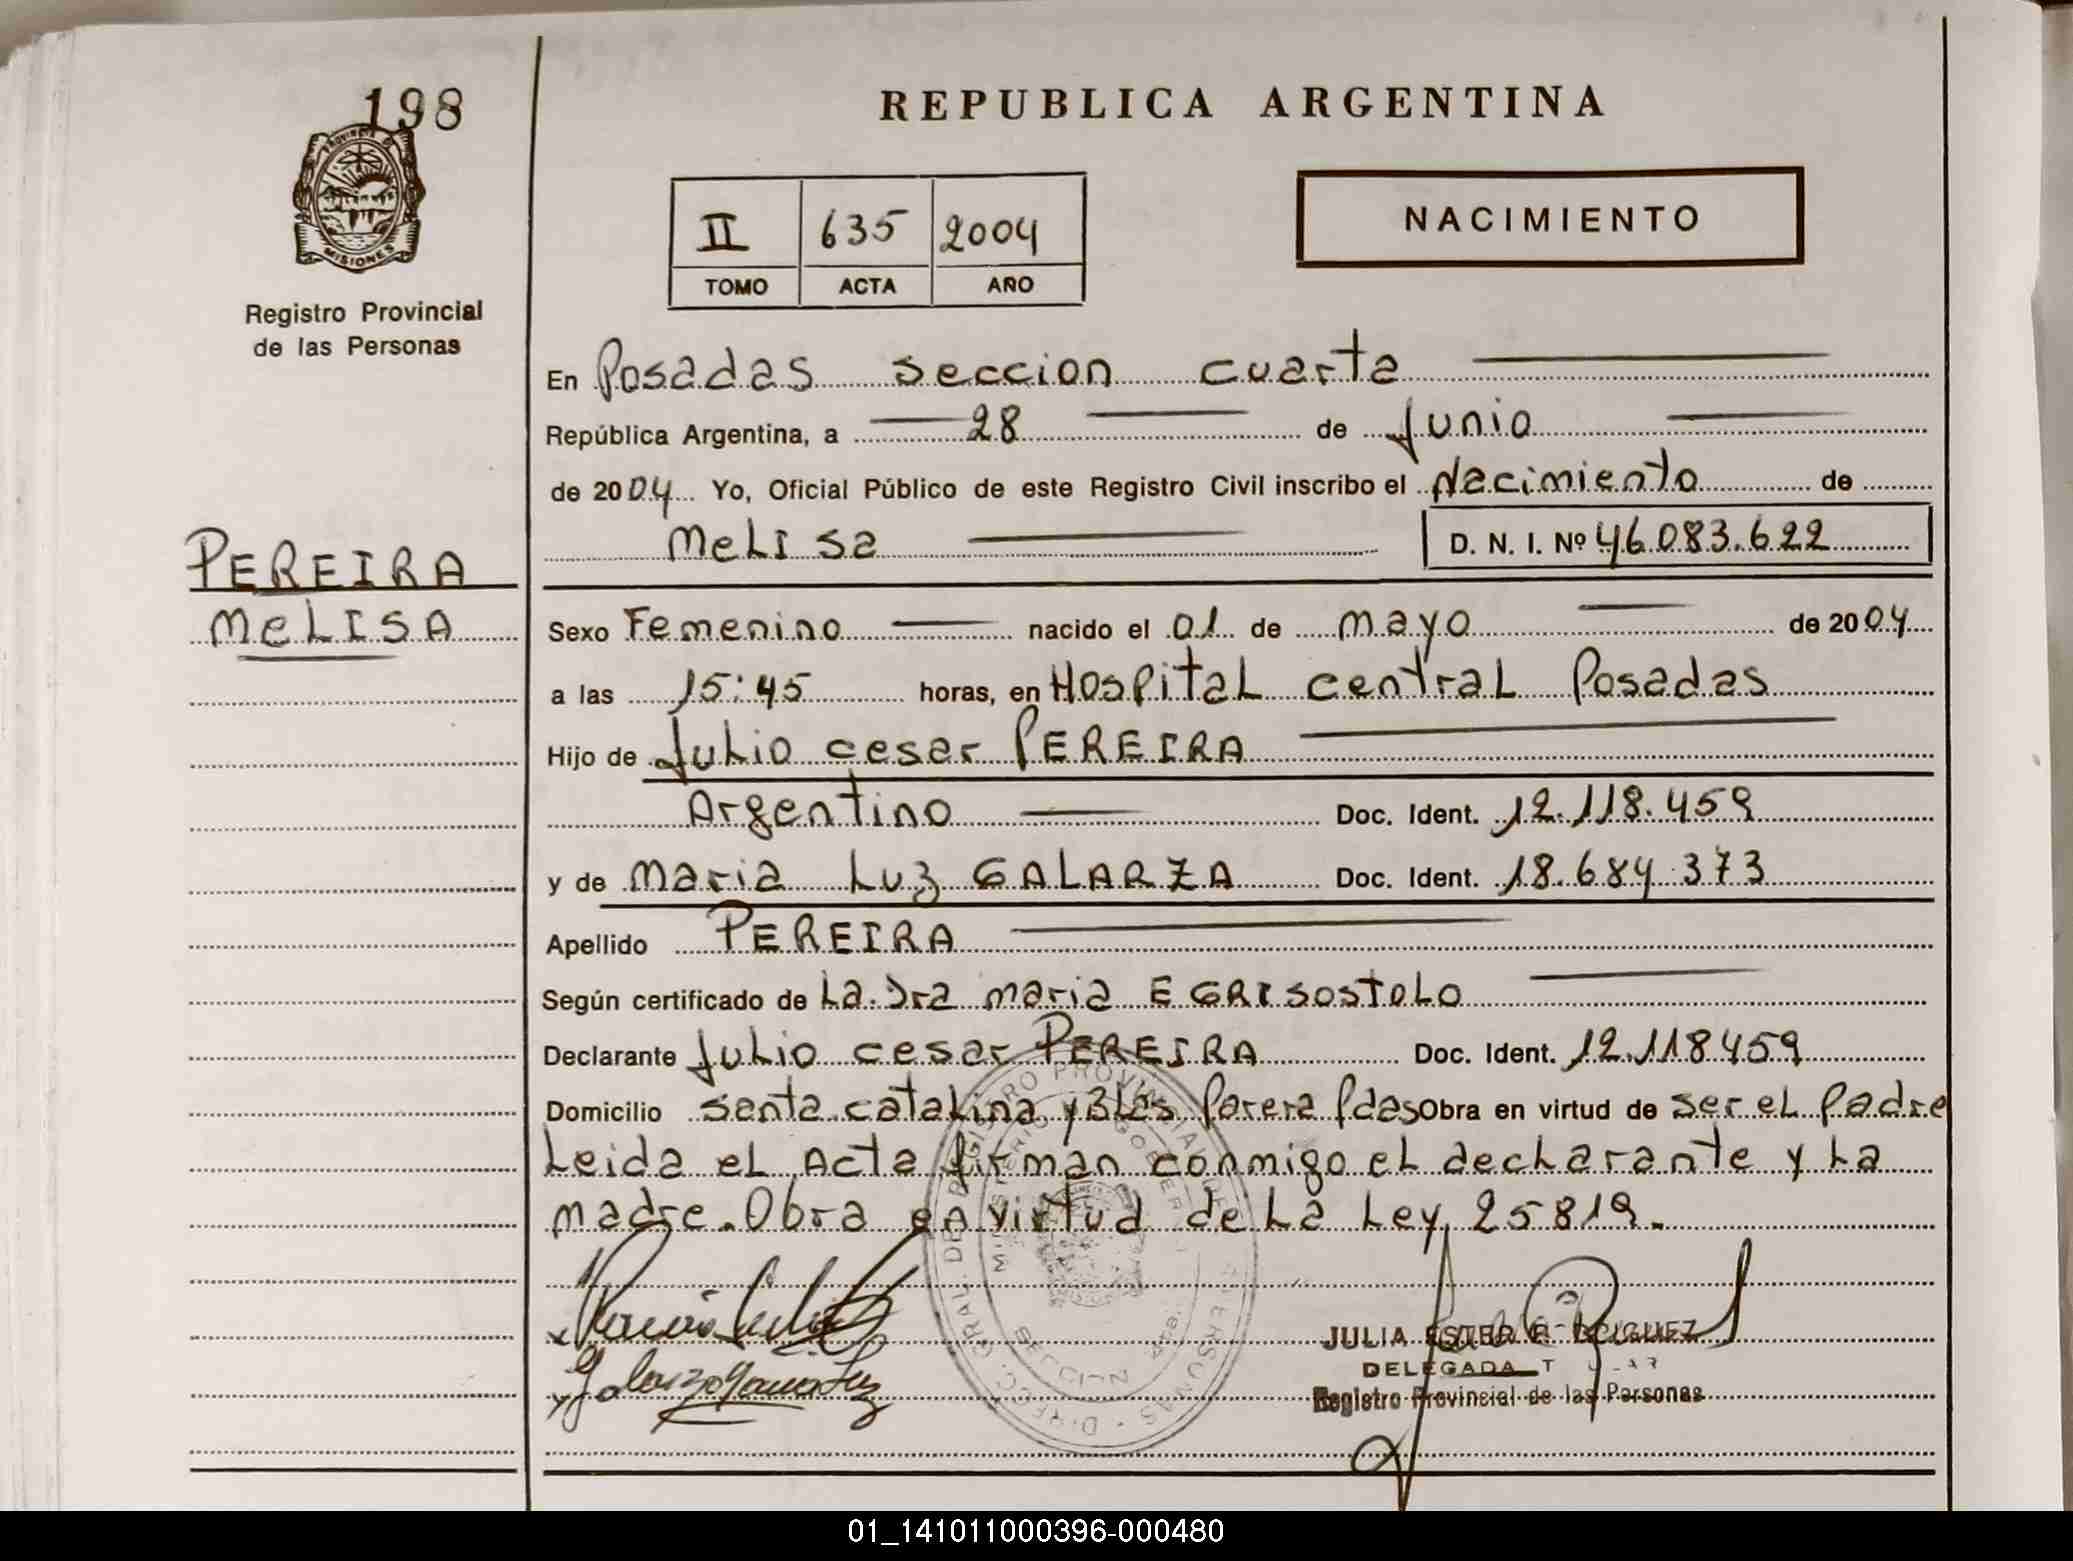 198
PROVINCIA DE
MISIONES
Registro Provincial
de las Personas
PEREIRA
MELISA
REPUBLICA ARGENTINA
II 635 2004
TOMO ACTA AÑO
NACIMIENTO
En Posadas seccion cuarta
República Argentina, a 28 de Junio
de 2004 Yo, Oficial Público de este Registro Civil inscribo el Nacimiento de
Melisa D. N. I. Nº 46.083.622
Sexo Femenino nacido el 01 de mayo de 2004
a las 15:45 horas, en Hospital central Posadas
Hijo de Julio cesar PEREIRA
Argentino Doc. Ident. 12.118.459
y de maria Luz GALARZA Doc. Ident. 18.684.373
Apellido PEREIRA
Según certificado de La Dra maria E GRISOSTOLO
Declarante Julio cesar PEREIRA Doc. Ident. 12.118459
Domicilio santa catalina y Blas Parera Pdas Obra en virtud de ser el Padre
Leida el Acta firman conmigo el declarante y La
madre. Obra en virtud de La Ley 25819.
JULIA ESTER
DELEGADA
Registro Provincial de las Personas
01_141011000396-000480